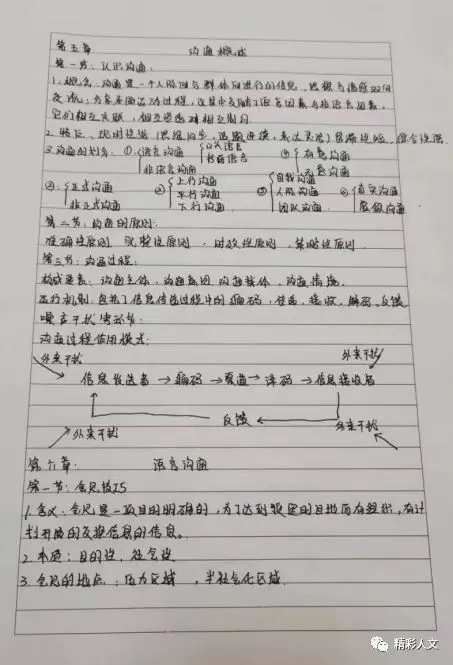 第五章 沟通概述
第一节：认识沟通
1.概念：沟通是一个人际间与群体间进行的信息、思想与情感的
交流；为多方面互动过程，这其中交融了语言因素与非语言因素，
它们相互关联，相互渗透时相互制约
2.特征、现时性 (思维同步，话题连换，表达灵活)
3.沟通的划分：① 语言沟通 口头语言 书面语言 ④ 有意沟通
非语言沟通 无意沟通
② 正式沟通 ③ 上行沟通 ⑤ 自我沟通 ⑥ 真实沟通
非正式沟通 平行沟通 人际沟通 虚假沟通
下行沟通 团队沟通
第二节：沟通的原则：
准确性原则 完整性原则 ，时效性原则，策略性原则
第三节：沟通过程：
构成要素：沟通主体，沟通客体 沟通载体，沟通情境
运行机制：包括了信息传递过程中的编码，传递，接收，解码，反馈
噪声干扰等环节
沟通过程作用模式：
外来干扰 外来干扰
信息发送者 → 编码 → 渠道 → 译码 → 信息接收者
反馈
外来干扰 外来干扰
第六章： 语言沟通
第一节：会见技巧
1.含义：会见是一项目的明确的，为了达到预定的目地而有组织，有计
划开展的交换信息的信息。
2.本质：目的性，社会性
3.会见的地点：压力区域 ，半社会化区域
精彩人文